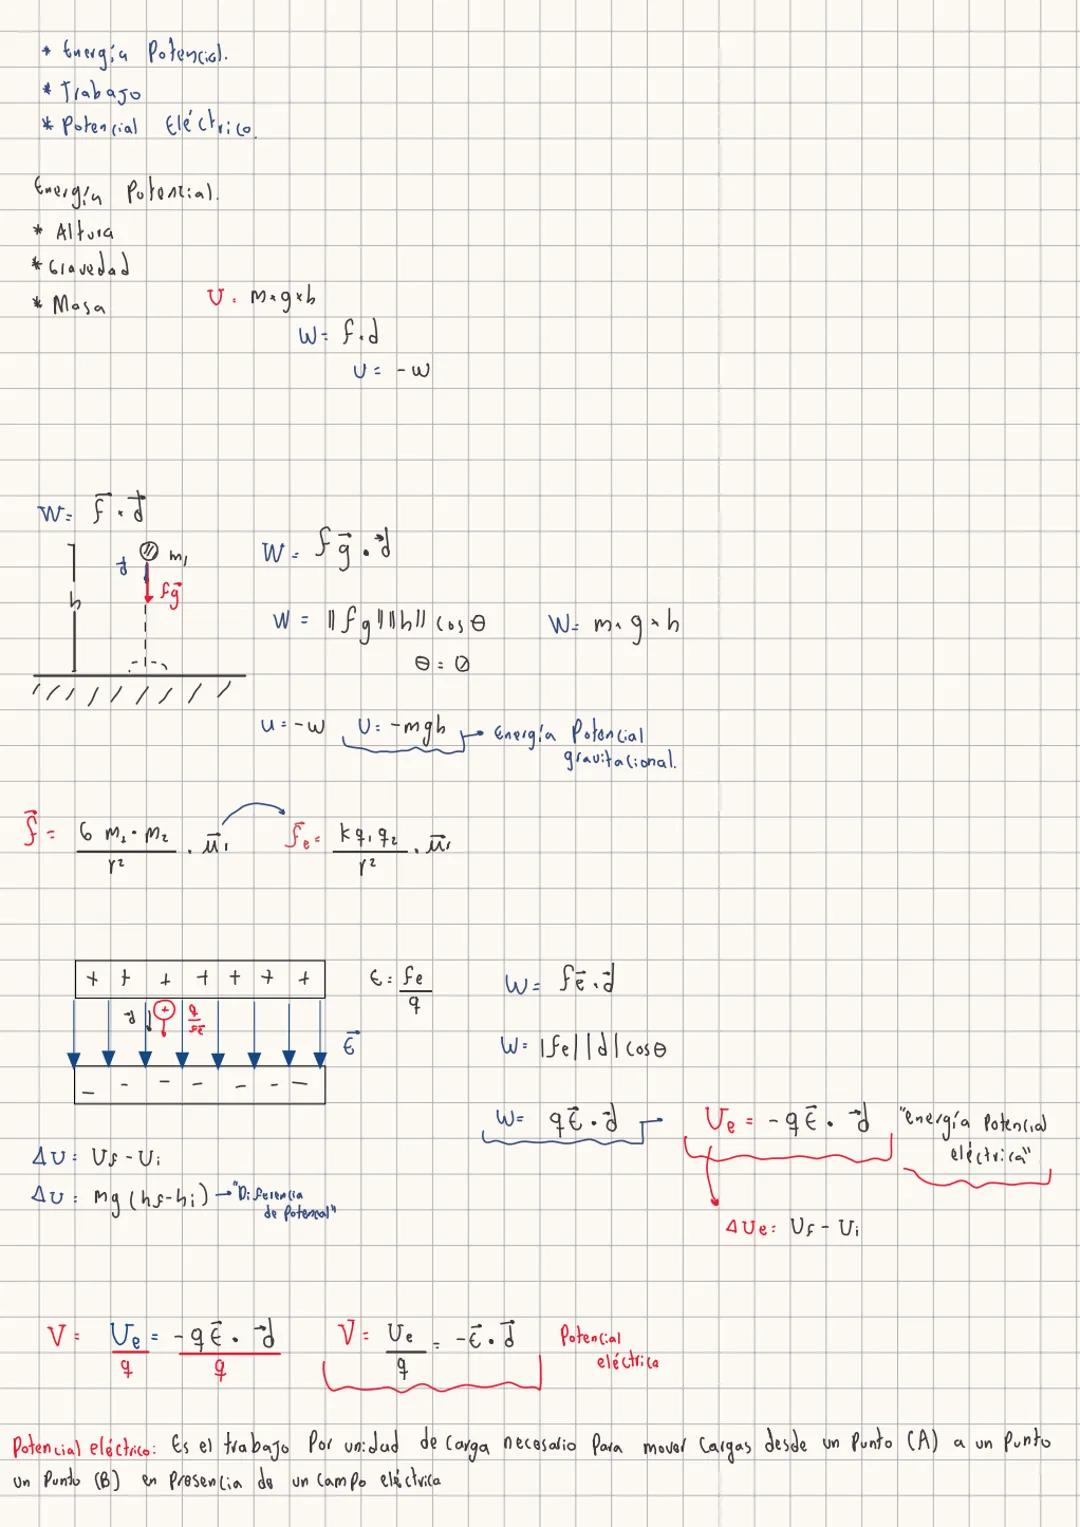 * Energía Potencial.
* Trabajo
* Potencial Eléctrico.
Energía Potencial.
* Altura
* Gravedad
* Masa
U = m×g×h
W = f.d
U = -W
W = f⃗ . d⃗
h
d⃗
m₁
fg⃗
W = fg⃗ . d⃗
W = ||fg|| ||h|| cos θ
W = m×g×h
θ = 0
U = -W U = -mgh → Energía Potencial
gravitacional.
f⃗ = G m₁ . m₂ / r² . u⃗r
f⃗e = K q₁ q₂ / r² . u⃗r
+ + + + + + +
d⃗ +
E⃗
- - - - - - -
E = fe / q
W = fe⃗ . d⃗
W = |fe| |d| cos θ
W = qE⃗ . d⃗
Ue = -qE⃗ . d⃗ "energía Potencial
eléctrica"
ΔU = Uf - Ui
ΔU = mg (hf-hi) → "Diferencia
de Potencal"
ΔUe = Uf - Ui
V = Ue / q = -qE⃗ . d⃗ / q
V = Ue / q = -E⃗ . d⃗
Potencial
eléctrica
Potencial eléctrico: Es el trabajo Por unidad de carga necesario Para mover Cargas desde un Punto (A) a un Punto
un Punto (B) en Presencia de un Campo eléctrica